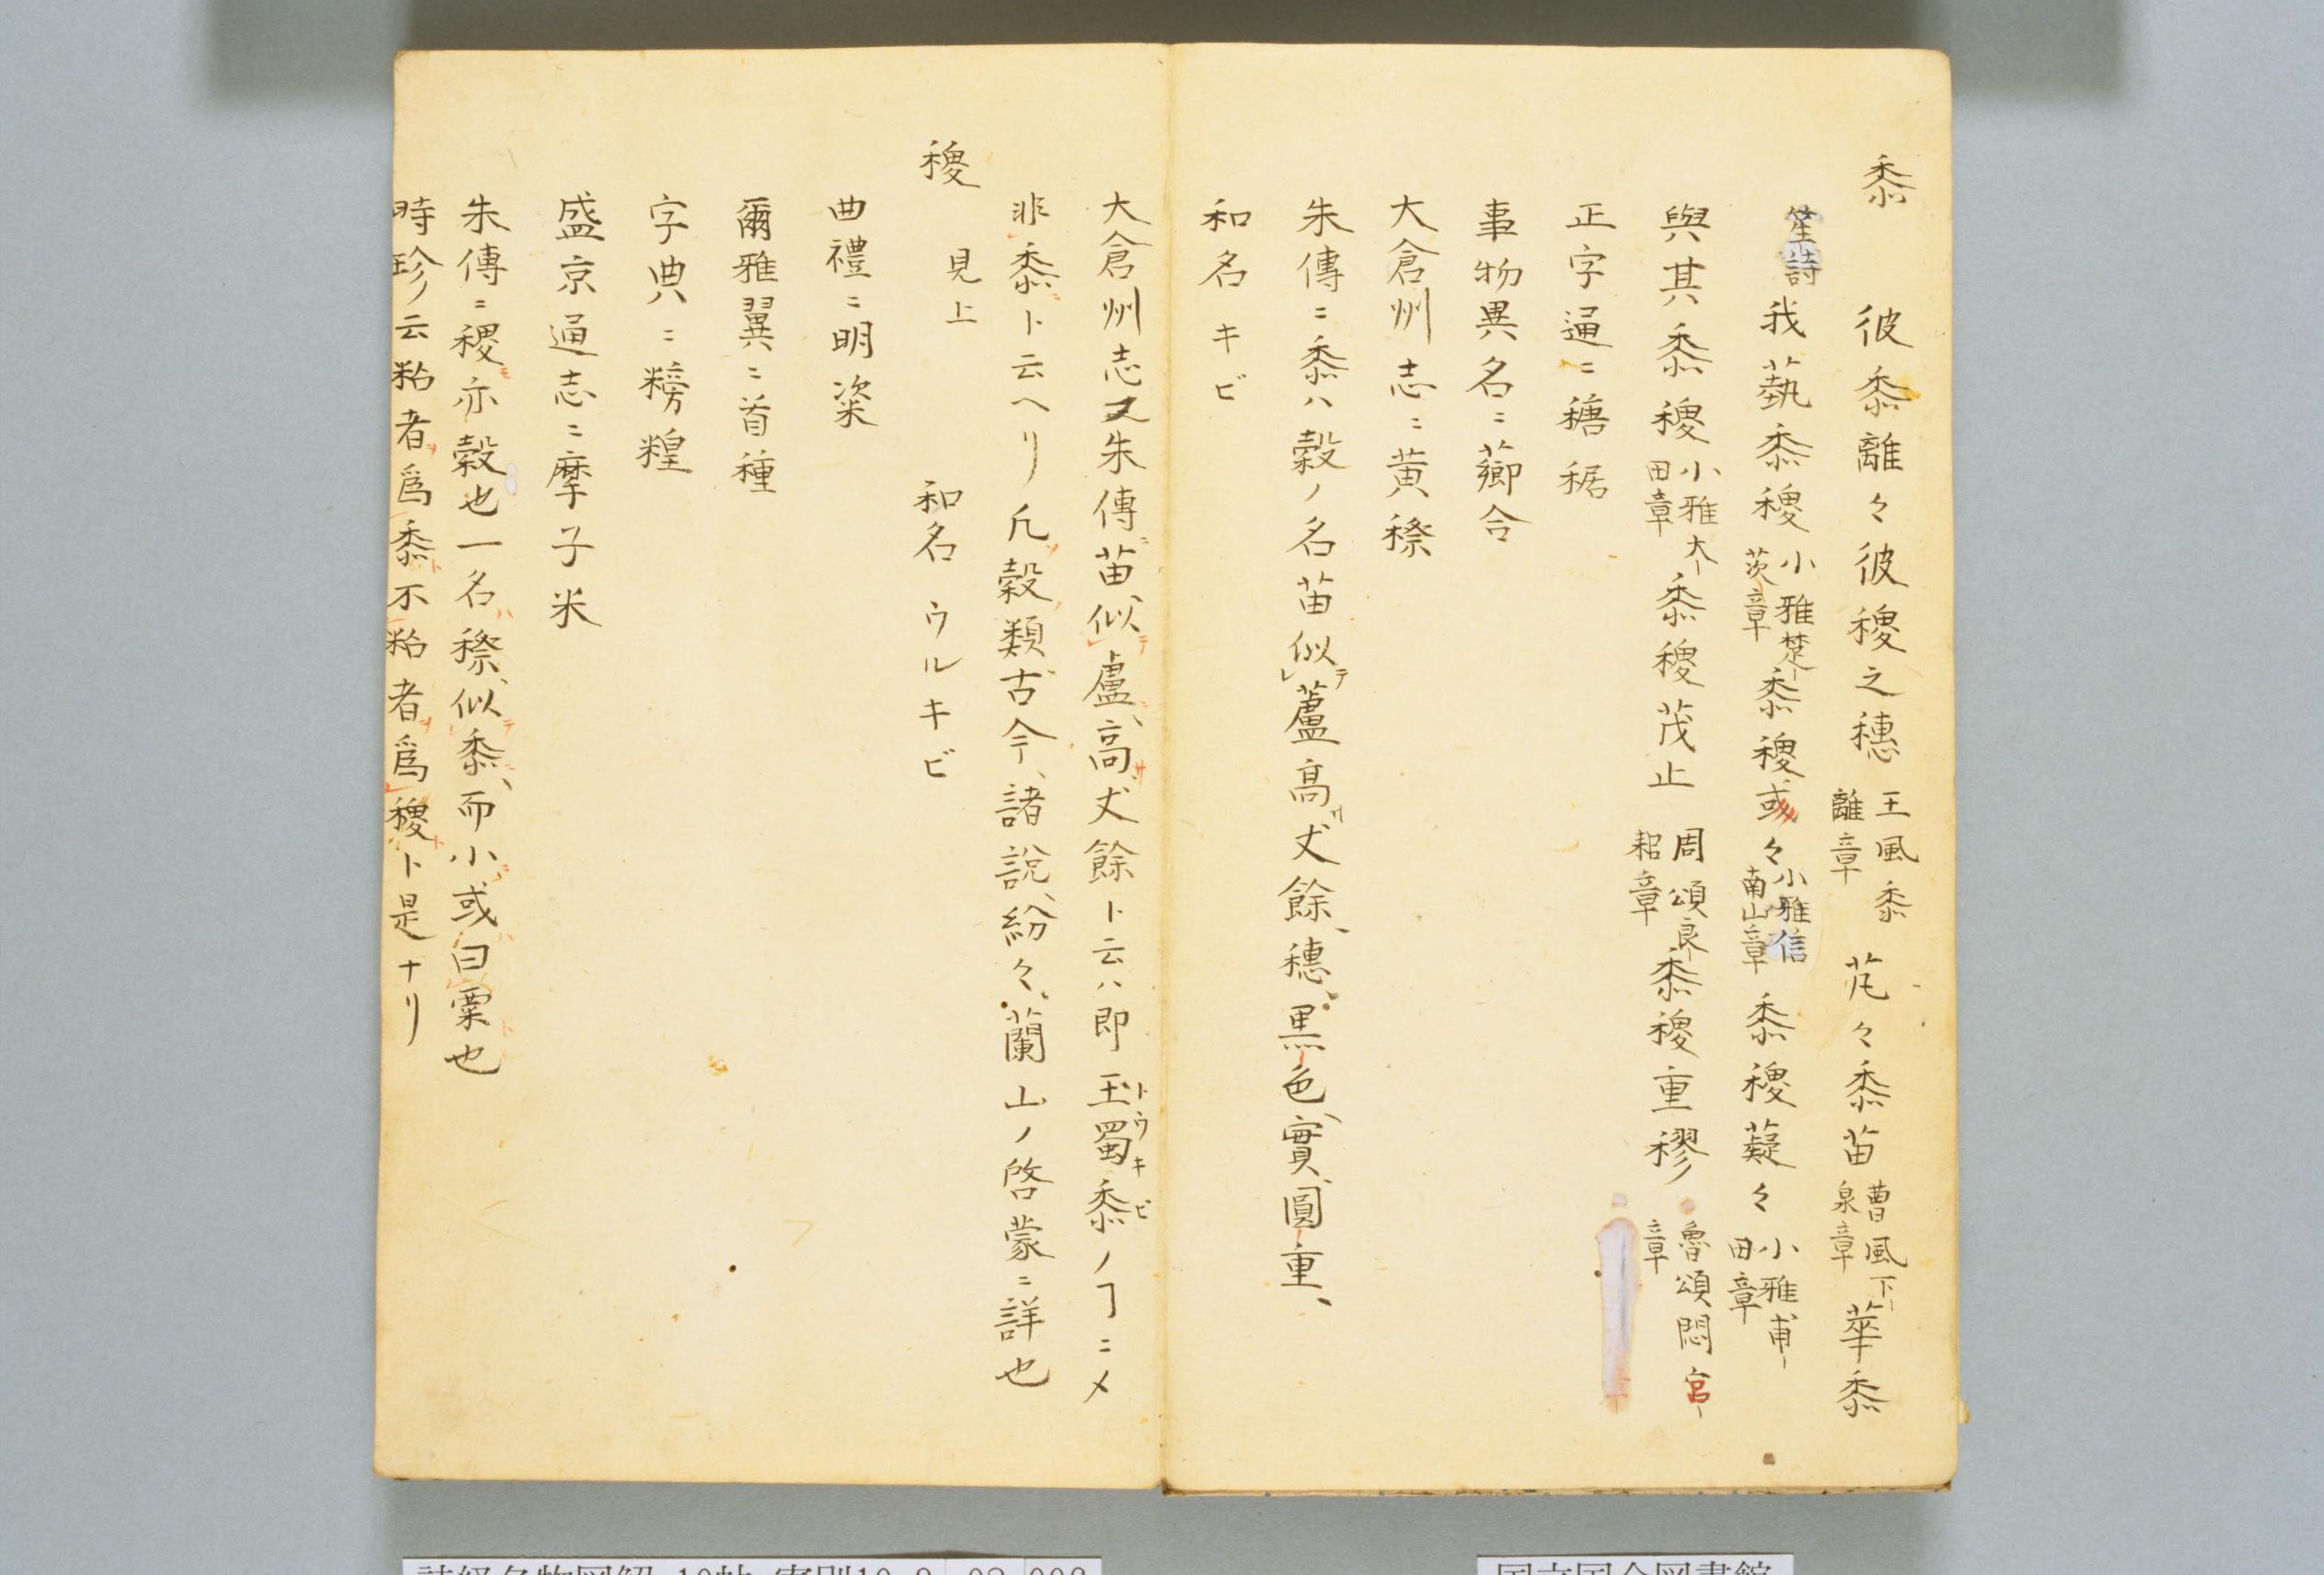 黍
彼黍離々彼稷之穗 王風黍離章 芃々黍苗 曹風下泉章 華黍
笙詩 我蓺黍稷 小雅楚茨章 黍稷或々 小雅信南山章 黍稷薿々 小雅甫田章
與其黍稷 小雅大田章 黍稷茂止 周頌良耜章 黍稷重穋 魯頌悶宮章
正字通ニ䅯䅕
事物異名ニ薌合
大倉州志ニ黄穄
朱傳ニ黍ハ穀ノ名苗似テ蘆高サ丈餘、穗、黒色、實圓重、
和名キビ
大倉州志又朱傳苗似テ盧、高サ丈餘ト云ハ即玉蜀黍トウキビノヿニメ
非黍ト云ヘリ凡穀類古今、諸説、紛々、蘭山ノ啓蒙ニ詳也
稷 見上 和名 ウルキビ
曲禮ニ明粢
爾雅翼ニ首種
字典ニ䊑䊗
盛京通志ニ摩子米
朱傳ニ稷亦穀也一名ハ穄、似テ黍、而小或曰粟ト也
時珍ノ云粘者ヲ爲黍ト不粘者ヲ爲稷ト是ナリ
詩経名物図解 10帖 寄別10-9 02 006
国立国会図書館